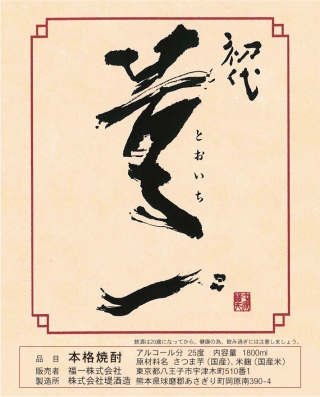 初代
董一
とおいち
飲酒は20歳になってから。健康の為、飲み過ぎには注意しましょう。
品 目 本格焼酎 アルコール分 25度 内容量 1800ml
原材料名 さつま芋(国産)、米麹(国産米)
販売者 福一株式会社 東京都八王子市宇津木町510番1
製造所 株式会社堤酒造 熊本県球磨郡あさぎり町岡原南390-4